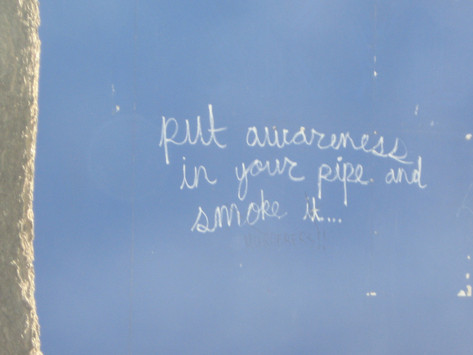 put awareness
in your pipe and
smoke it...